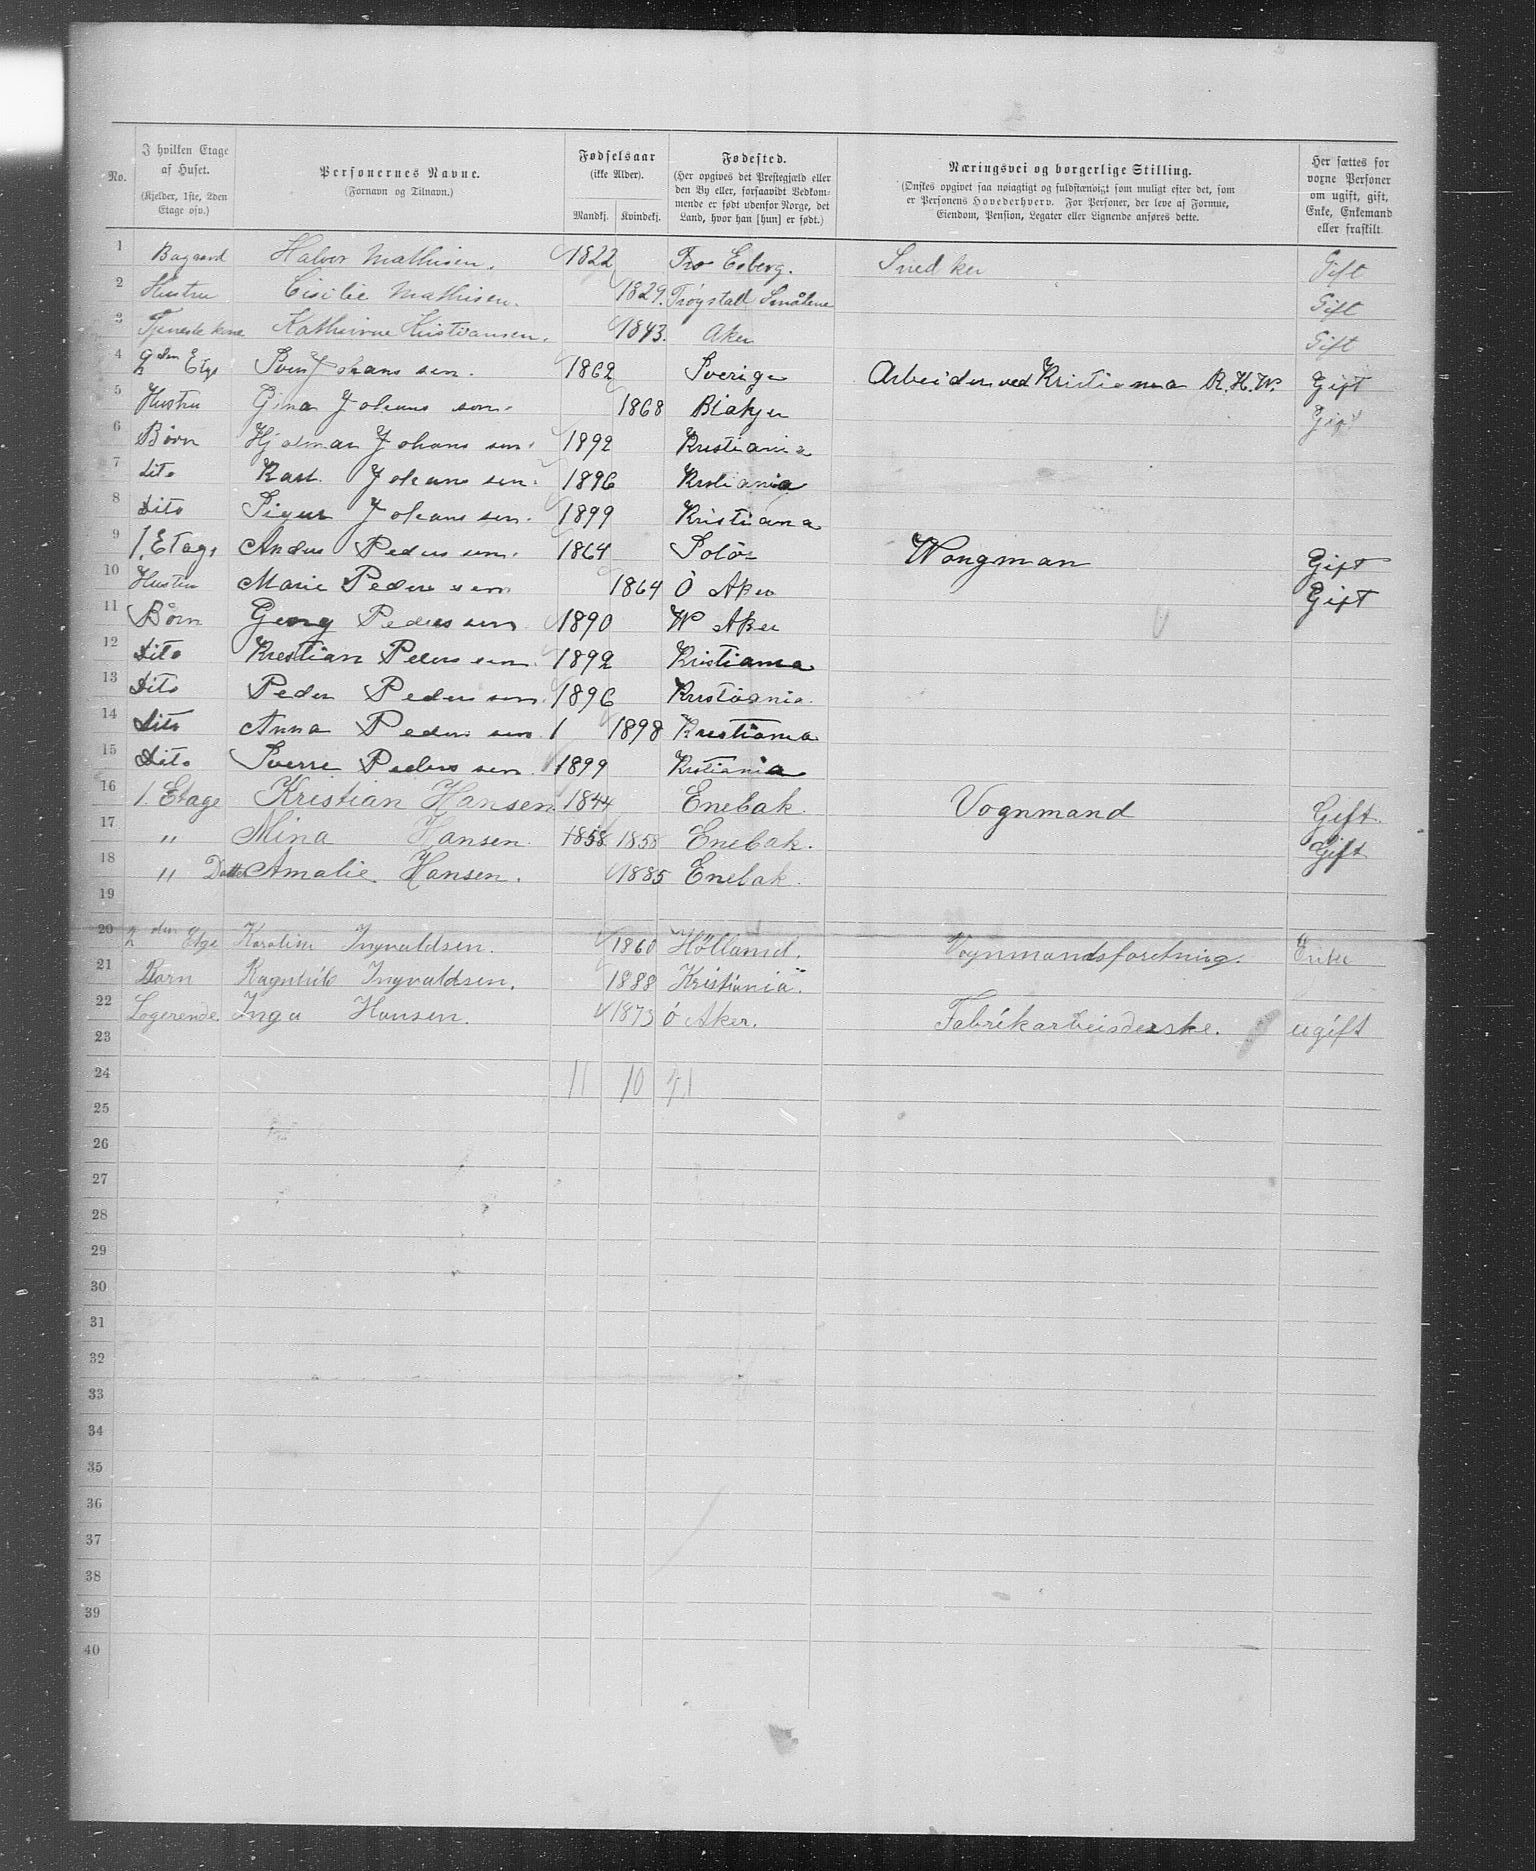 No. | I hvilken Etage af Huset. (Kjelder, 1ste, 2den Etage osv.) | Personernes Navne. (Fornavn og Tilnavn.) | Fødselsaar (ikke Alder). Mandkj. Kvindekj. | Fødested. (Her opgives det Prestegjæld eller den By eller, forsaavidt Vedkommende er født udenfor Norge, det Land, hvor han [hun] er født.) | Næringsvei og borgerlige Stilling. (Ønskes opgivet saa nøiagtigt og fuldstændigt som muligt efter det, som er Personens Hovederhverv. For Personer, der leve af Formue, Eiendom, Pension, Legater eller Lignende anføres dette. | Her sættes for voxne Personer om ugift, gift, Enke, Enkemand eller fraskilt.
1 Bagaard Halvor Mathisen. 1822 Esberg. Snedker Gift
2 Hustru Cisilie Mathisen. 1829. Trøgstad Smålene Gift
3 Tjeneste Kathrinne Kristiansen. 1843. Aker Gift
4 2den Etge Sven Johanssen. 1862 Sverige Arbeider ved Kristiania R.H.W. Gift
5 Hustru Gina Johanssen. 1868 Blakjer Gift
6 Børn Hjalmar Johanssen. 1892 Kristiania
7 Dito Karl Johanssen. 1896 Kristiania
8 Dito Sigur Johanssen. 1899 Kristiana
9 1. Etage Anders Pederssen. 1864 Solør Wongman Gift
10 Hustru Marie Pederssen 1864 Ö Aker Gift
11 Børn Georg Pederssen 1890 W Aker
12 Dito Krestian Pederssen. 1892 Kristiania
13 Dito Peder Pederssen. 1896 Kristiania.
14 Dito Anna Pederssen 1 1898 Kristiania
15 Dito Sverre Pederssen 1899 Kristiania
16 1. Etage Kristian Hansen 1844 Enebak. Vognmand Gift.
17 " Mina Hansen. 1858 1858 Enebak. Gift
18 " Datter Amalie Hansen. 1885 Enebak.
19
20 2den Etge Karoline Ingvaldsen. 1860 Hölland. Vognmandsforetning. Enke
21 Barn Ragnhild Ingvaldsen. 1888 Kristiania.
22 Logerende Inga Hansen. 1873 Ö Aker. Fabrikarbeiderske. ugift
23
24 11 10
25
26
27
28
29
30
31
32
33
34
35
36
37
38
39
40